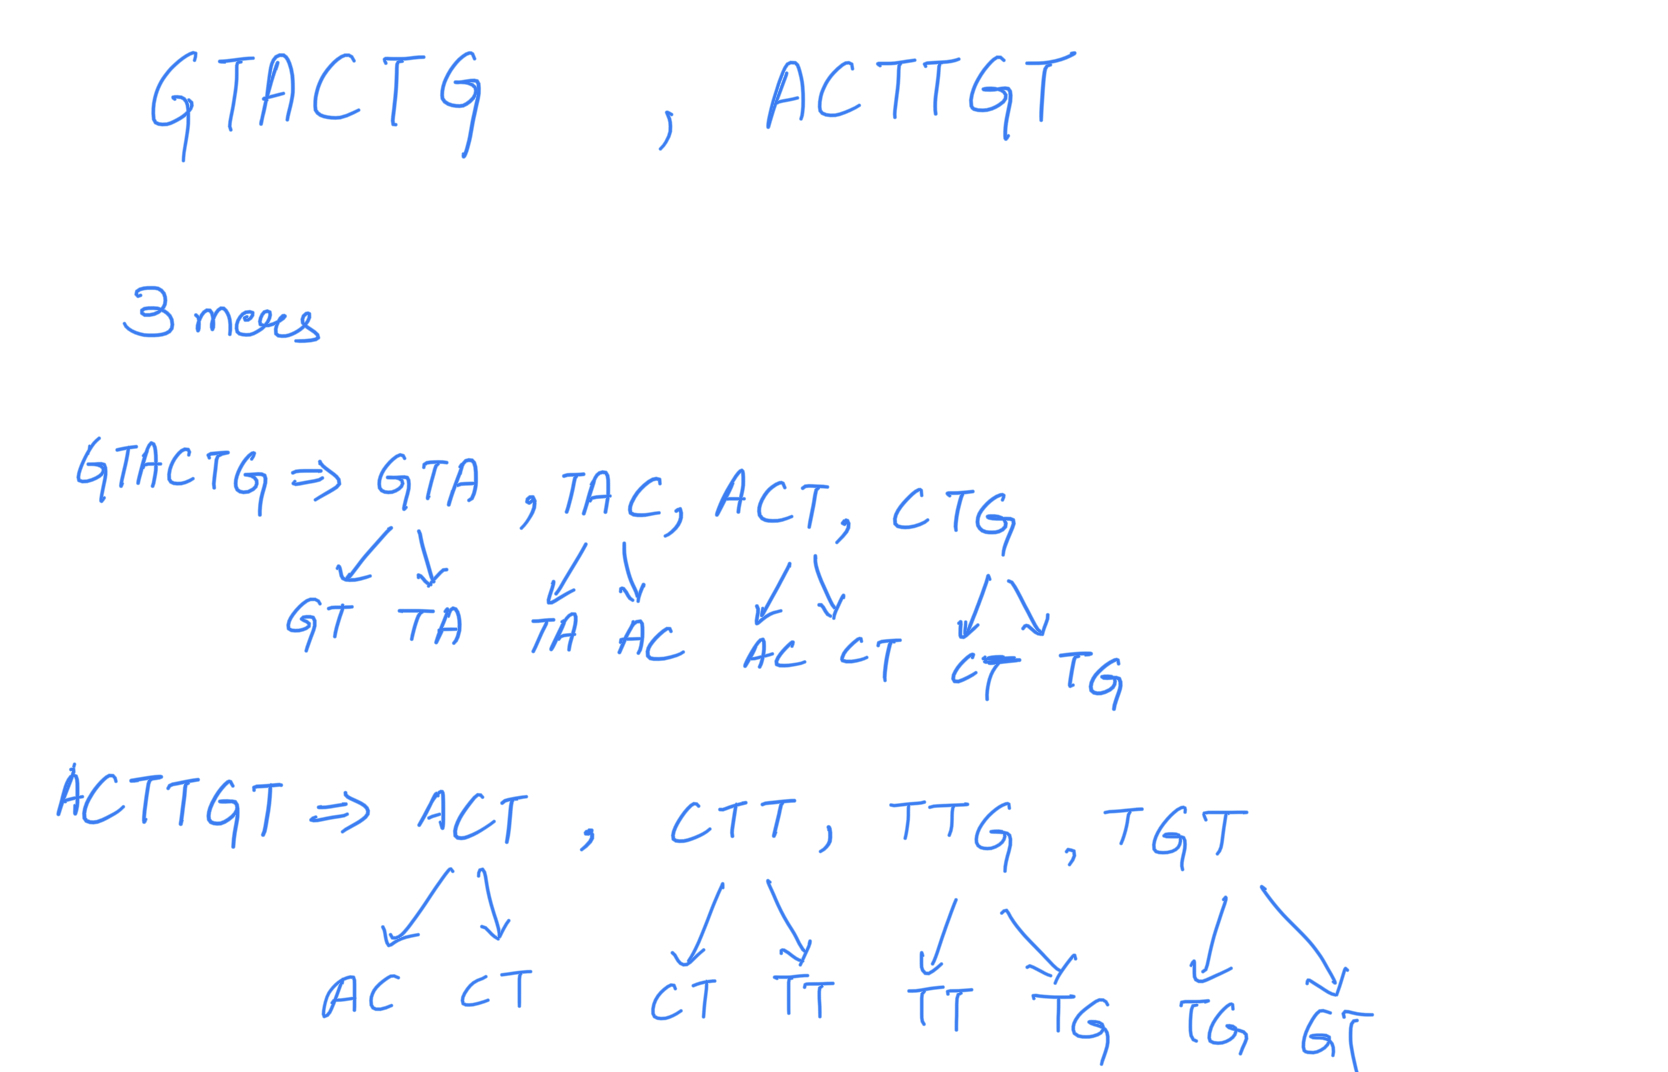 GTACTG , ACTTGT
3 mers
GTACTG ⇒ GTA , TAC, ACT, CTG
GT TA TA AC AC CT CT TG
ACTTGT ⇒ ACT , CTT, TTG , TGT
AC CT CT TT TT TG TG GT